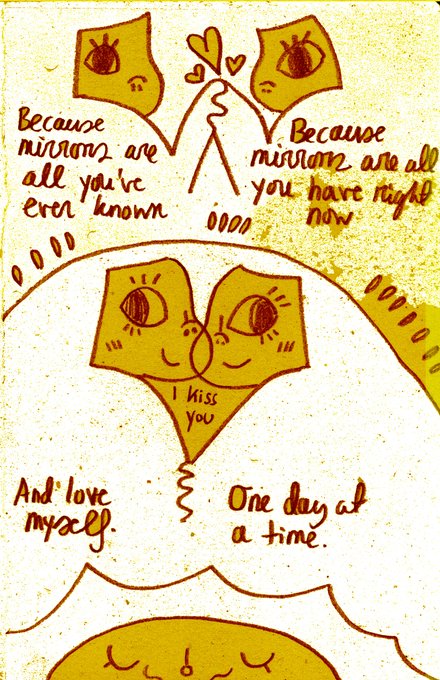 Because
mirrors are
all you've
ever known
Because
mirrors are all
you have right
now
I kiss
you
And love
myself.
One day at
a time.